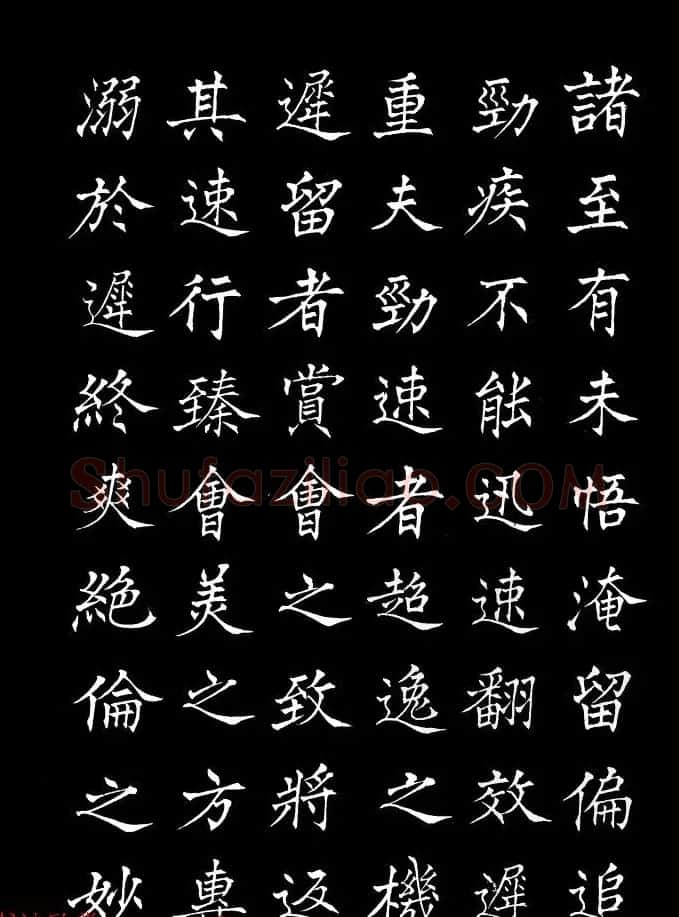 諸至有未悟淹留偏追
勁疾不能迅速翻效遲
重夫勁速者超逸之機
遲留者賞會之致將返
其速行臻會美之方專
溺於遲終爽絶倫之妙
Shufaziliao.COM